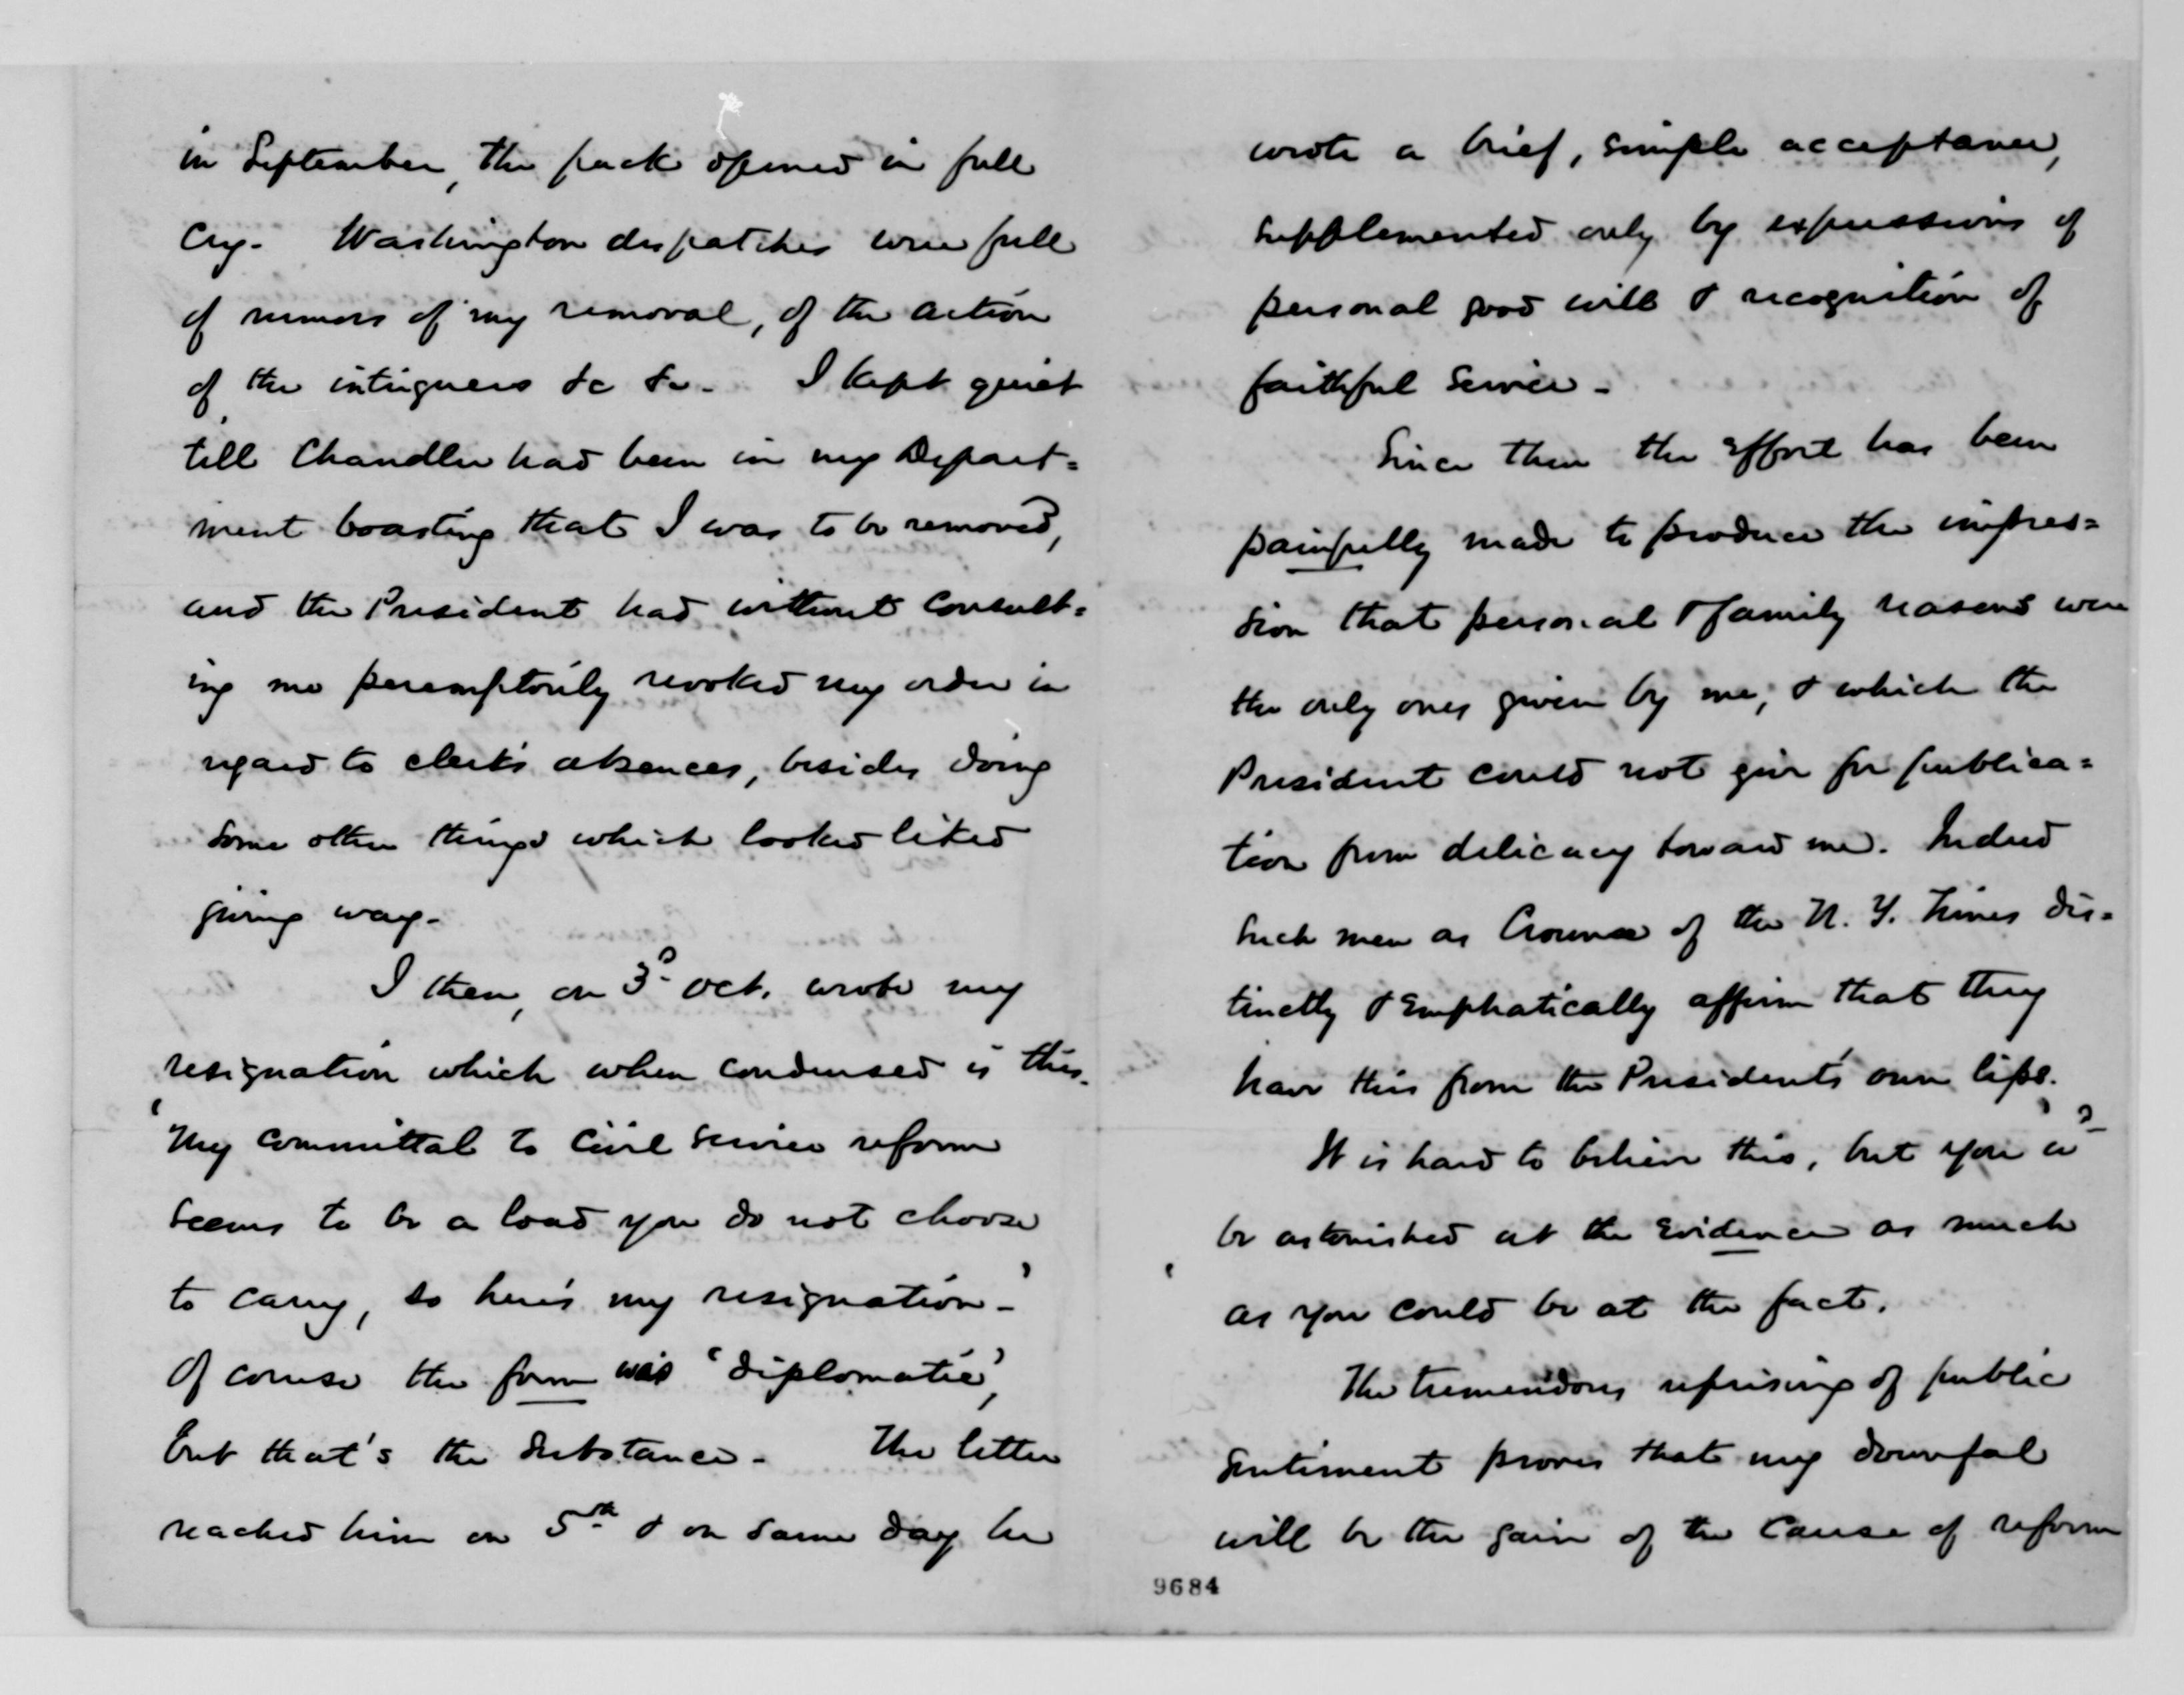 in September, the pack opened in full
cry. Washington dispatches were full
of rumors of my removal, of the action
of the intriguers &c &c. I kept quiet
till Chandler had been in my Depart=
ment boasting that I was to be removed,
and the President had without consult=
ing me peremptorily revoked my order in
regard to clerk's absences, besides doing
some other things which looked liked
giving way.
I then, on 3d Oct. wrote my
resignation which when condensed is this.
'My committal to Civil Service reform
seems to be a load you do not choose
to carry, so here's my resignation-'
Of course the form was 'diplomatic',
but that's the substance. The letter
reached him on 5th & on same day he
wrote a brief, simple acceptance,
supplemented only by expressions of
personal good will & recognition of
faithful service -
Since then the effort has been
painfully made to produce the impres=
sion that personal & family reasons were
the only ones given by me, & which the
President could not give for publica=
tion from delicacy toward me. Indeed
such men as Crounse of the N. Y. Times dis=
tinctly & emphatically affirm that they
have this from the President's own lips.
It is hard to believe this, but you w'd
be astonished at the evidence as much
as you could be at the fact.
The tremendous uprising of public
sentiment proves that my downfal
will be the gain of the cause of reform
9684